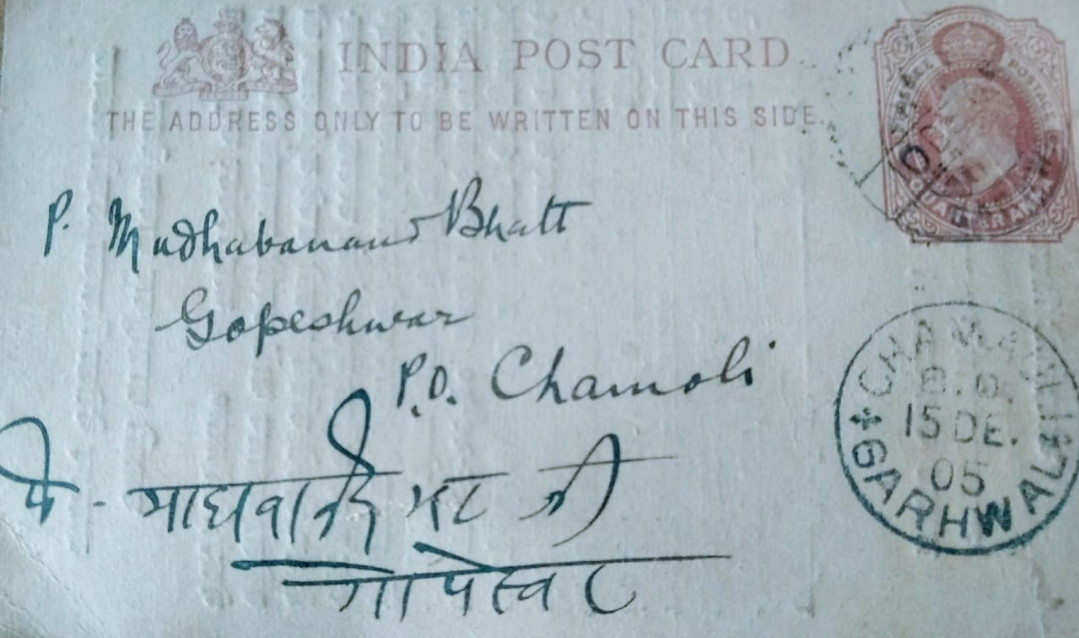 INDIA POST CARD
THE ADDRESS ONLY TO BE WRITTEN ON THIS SIDE.
P. Madhabanand Bhatt
Gopeshwar
P.O. Chamoli
माधवानंद भट जी
गोपेस्वर
CHAMOLI
B.O.
15 DE.
05
GARHWAL